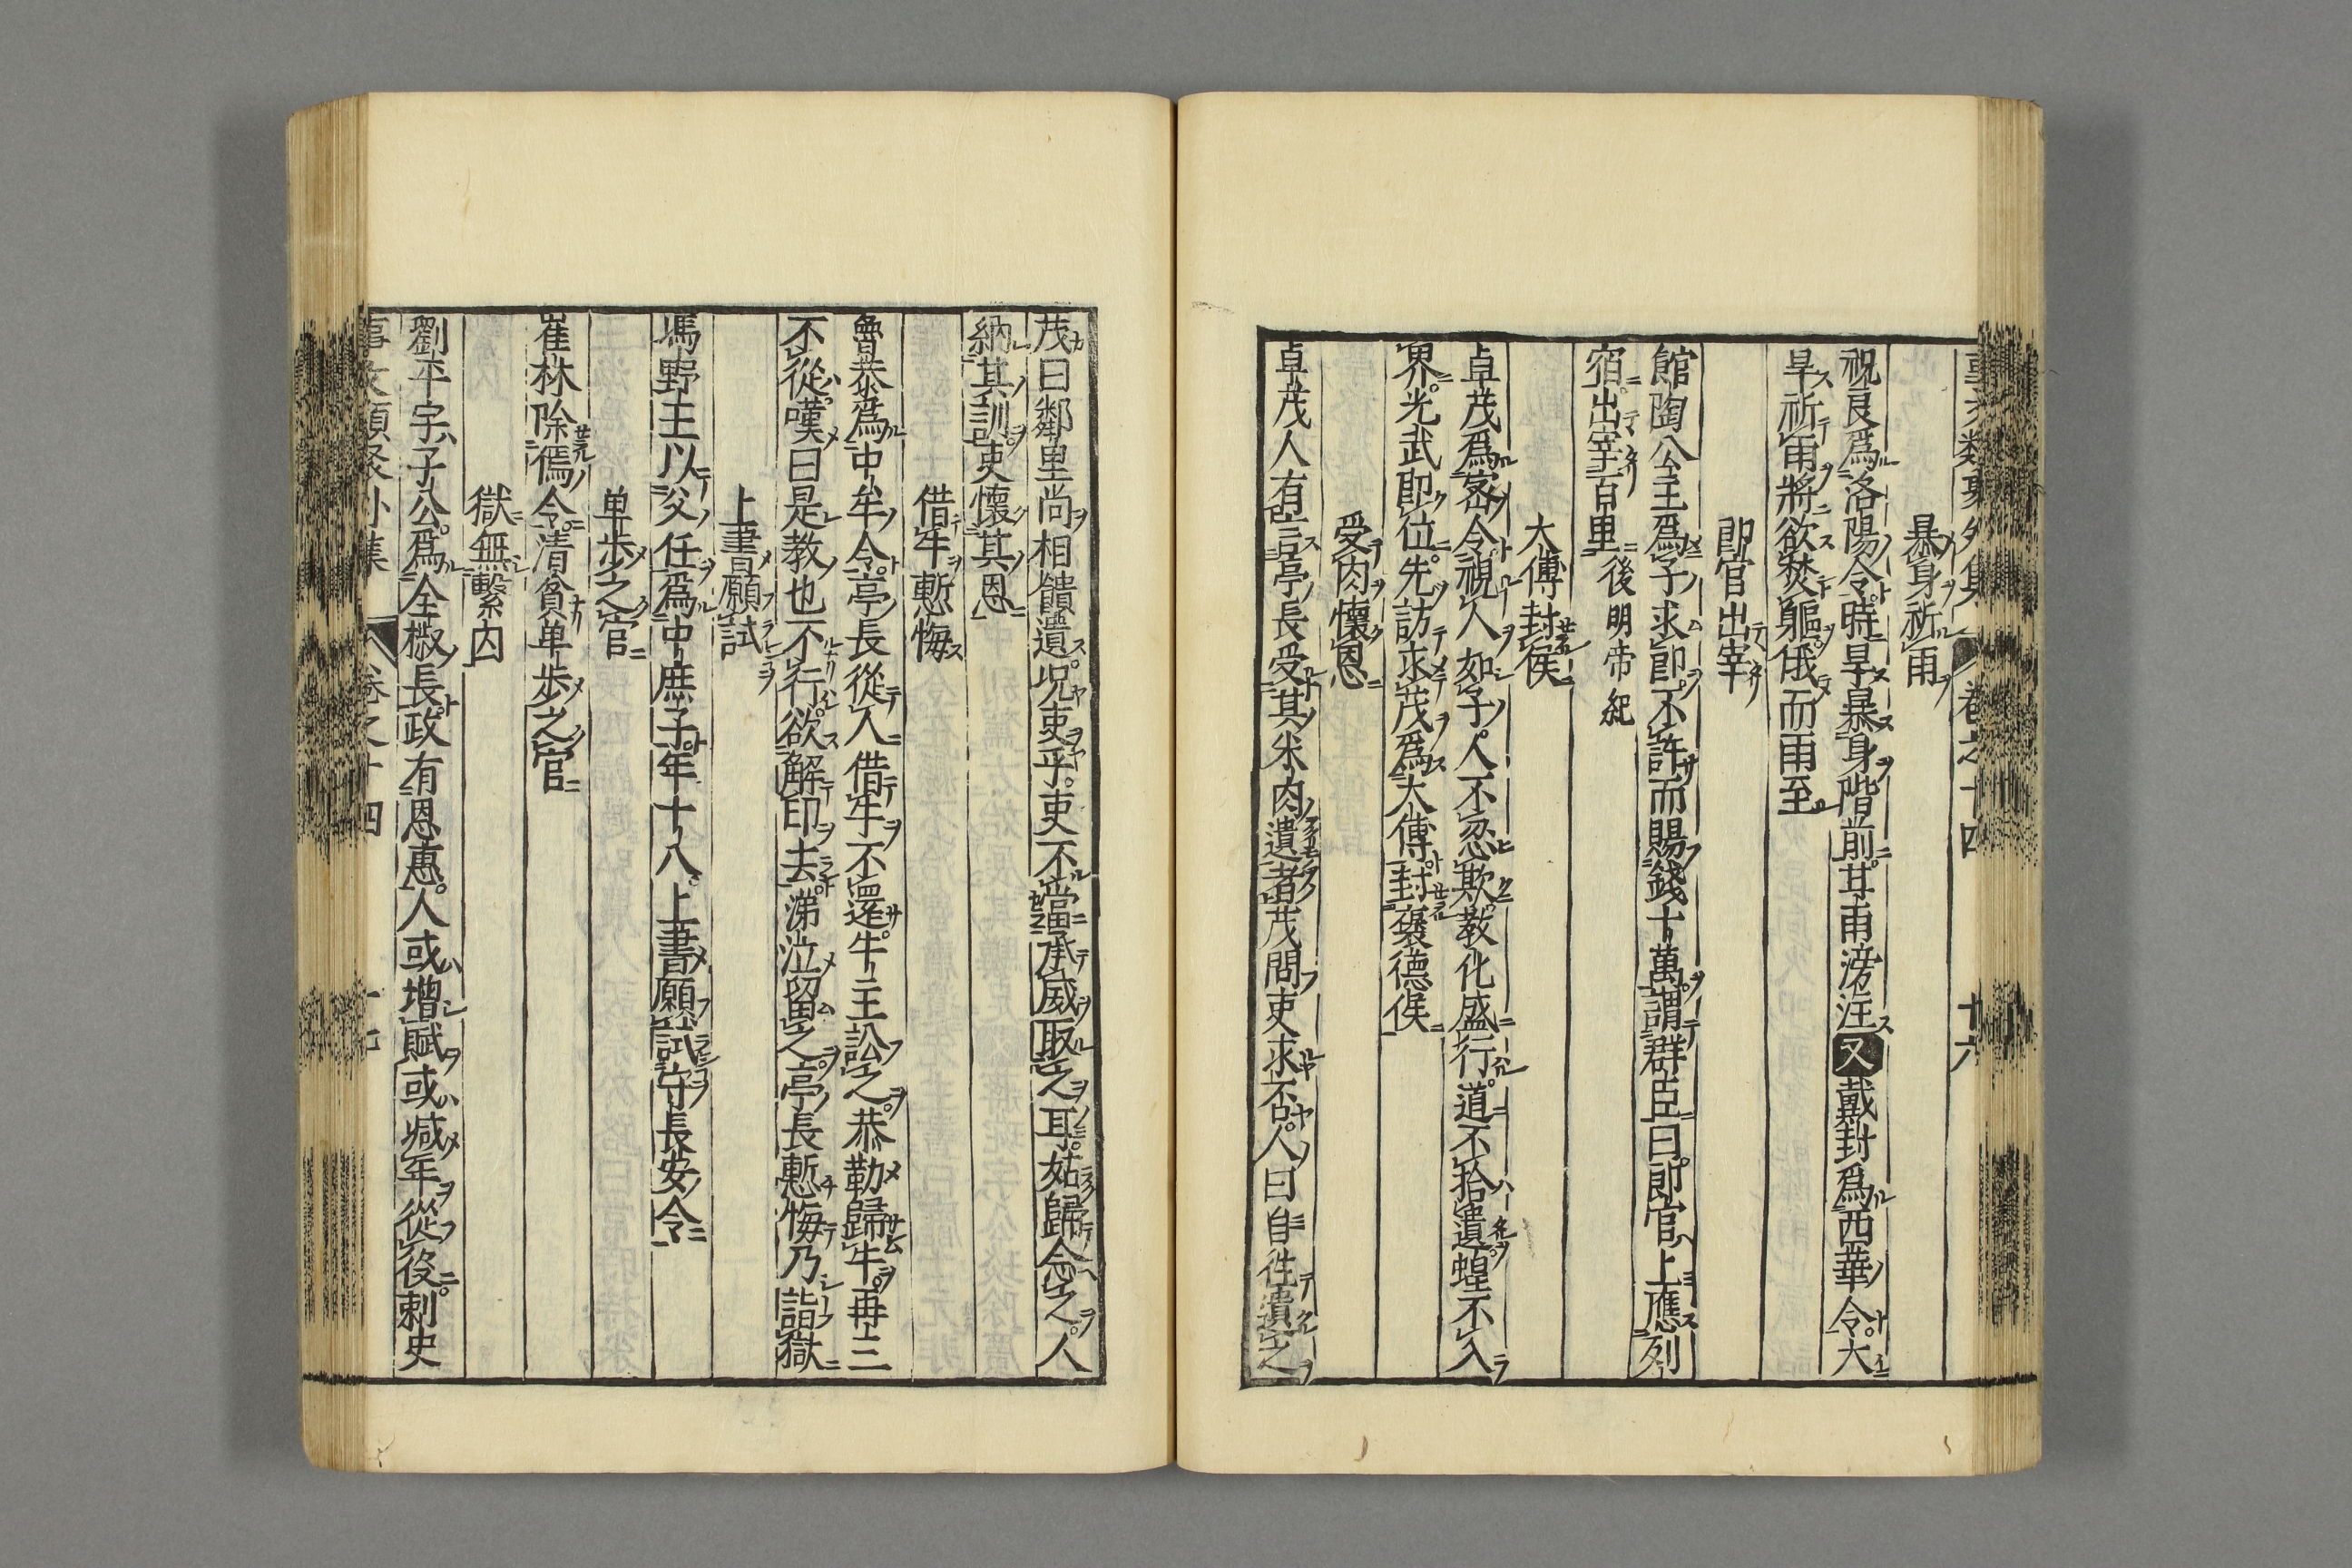 事文類聚外集 卷之十四 十六
暴身祈雨
祝良爲洛陽令時旱暴身階前甘雨滂注又戴封爲西華令大
旱祈雨將欲焚軀俄而雨至
郎官出宰
館陶公主爲子求郎不許而賜錢十萬謂群臣曰郎官上應列
宿出宰百里後明帝紀
大傅封侯
卓茂爲密令視人如子人不忍欺教化盛行道不拾遺蝗不入
界光武即位先訪求茂爲大傅封褒德侯
受肉懷恩
卓茂人有言亭長受其米肉遺者茂問吏求否人曰自往遺之
茂曰鄰里尚相饋遺况吏乎吏不當承威取之耳姑歸念之人
納其訓吏懷其恩
借牛慙悔
魯恭爲中牟令亭長從人借牛不還牛主訟之恭勒歸牛再三
不從嘆曰是教也不行欲解印去涕泣留之亭長慙悔乃詣獄
上書願試
馮野王以父任爲中庶子年十八上書願試守長安令
单步之官
崔林除鄔令清貧单步之官
獄無繫囚
劉平字子公爲全椒長政有恩惠人或增賦或减年從役刺史
事文類聚外集 卷之十四 十七